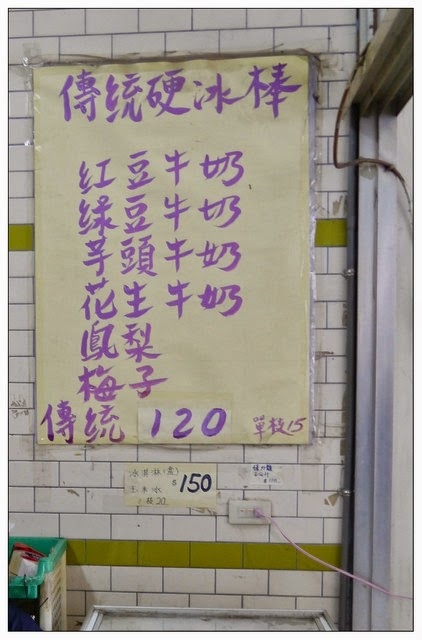 傳統硬冰棒
紅豆牛奶
綠豆牛奶
芋頭牛奶
花生牛奶
鳳梨
梅子
傳統 120 單枝15
冰淇淋(盒)
$150
玉米冰
1枝20